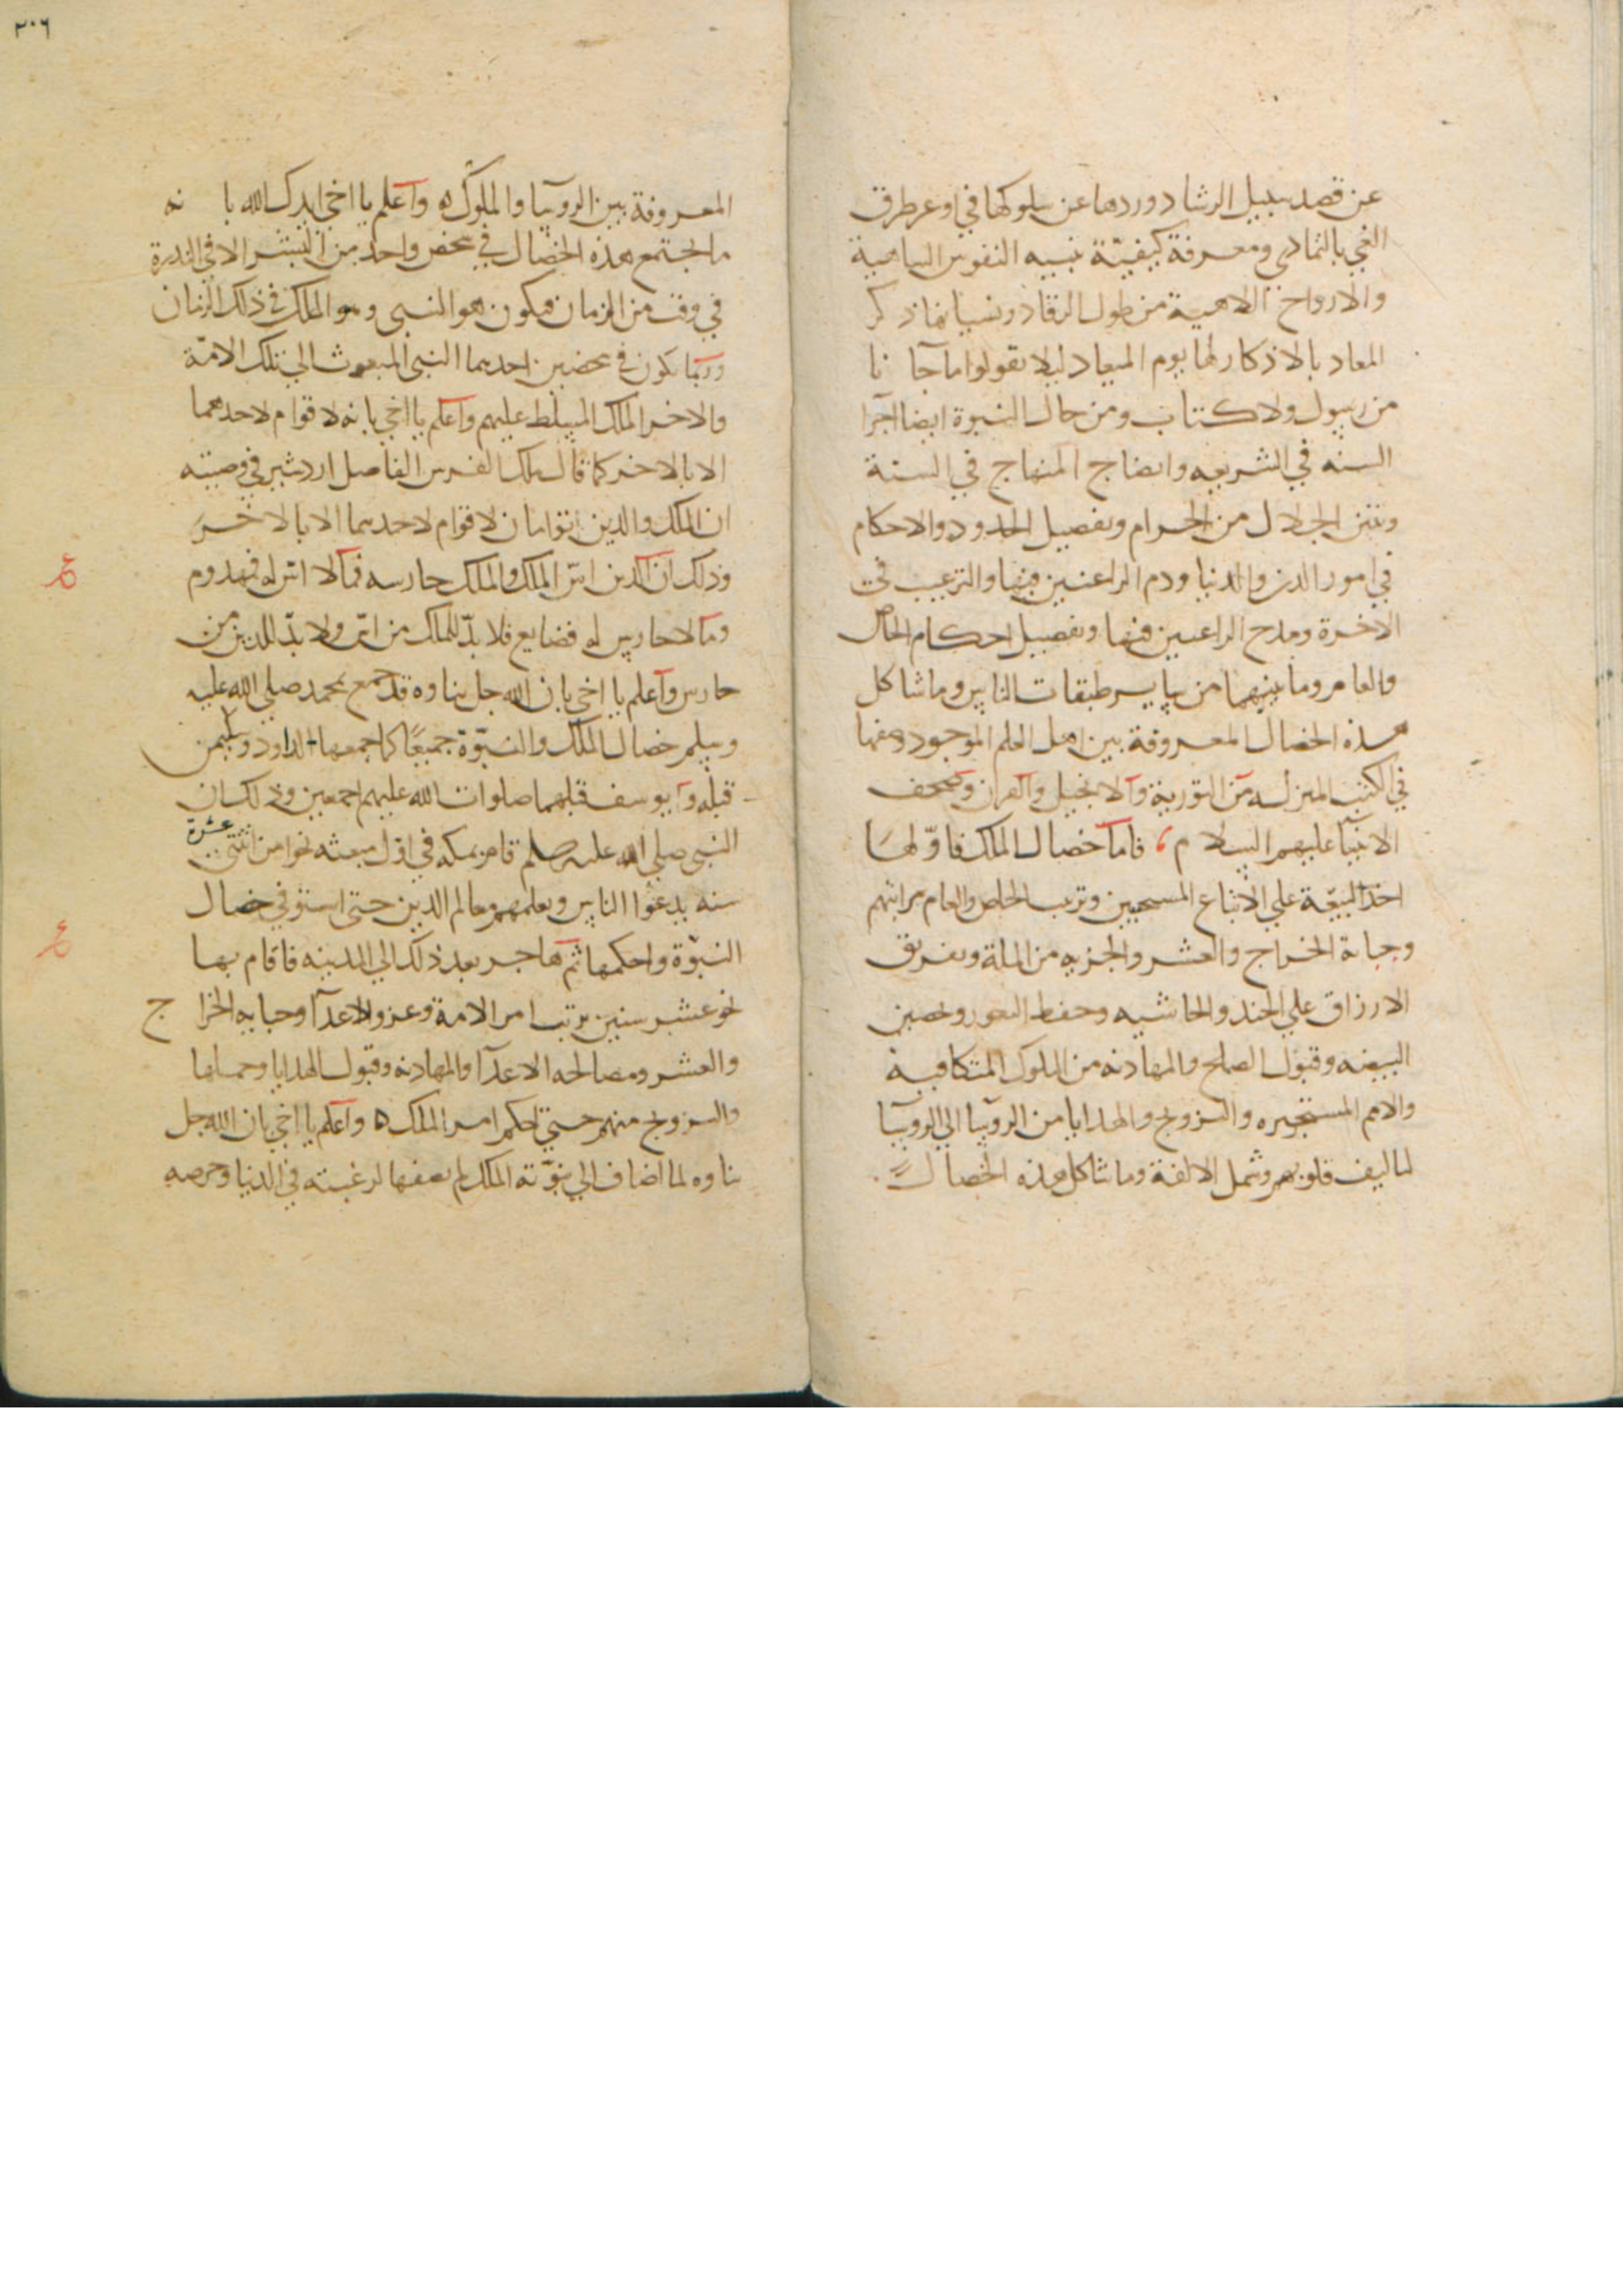 عن قصد سبيل الرشاد وردها عن سلوكها في وعر طرق
الغي بالتمادي ومعرفة كيفية تنبيه النفوس الساهية
والارواح اللاهية من طول الرقاد ونسيانها ذكر
المعاد بالاذكار لها يوم الميعاد ليلا يقولوا ما جآ نا
من رسول ولا كتاب ومن خصال النبوة ايضا اجرا
السنه في الشريعه وايضاح المنهاج في السنة
وتبين الحلال من الحرام وتفصيل الحدود والاحكام
في امور الدين والدنيا وذم الراغبين فيها والترغيب في
الاخرة ومدح الراغبين فيها وتفصيل احكام الخاص
والعام وما بينهما من ساير طبقات الناس وما شاكل
هذه الخصال المعروفة بين اهل العلم الموجود وصفها
في الكتب المنزله من التورية والانجيل والقران وصحف
الانبيآ عليهم السلام فاما خصال الملك فاوّلها
اخذ البيعة علي الاتباع المستجيبين وترتيب الخاص والعام مراتبهم
وجباية الخراج والعشر والجزيه من الملة وتفريق
الارزاق علي الجند والحاشيه وحفظ الثغور وتحصين
البيضه وقبول الصلح والمهادنه من الملوك المتكافية
والامم المستجيره والتزويج والهدايا من الروسآ الي الروسآ
لتاليف قلوبهم وشمل الالفة وما شاكل هذه الخصال
٢٠٦
المعروفة بين الروسآ والملوك ه واعلم يا اخي ايدك الله با نه
ما اجتمع هذه الخصال في شخص واحد من البشر الا في الندرة
في وقت من الزمان فيكون هو النبي وهو الملك في ذلك الزمان
وربما تكون في شخصين احدهما النبي المبعوث الي تلك الامّة
والاخر الملك المسلط عليهم واعلم يا اخي بانه لا قوام لاحدهما
الا بالاخر كما قال ملك الفرس الفاضل اردشير في وصيته
ان الملك والدين اتوامان لا قوام لاحدهما الا بالاخر
وذلك ان الدين اسّ الملك والملك حارسه فما لا اسّ له فمهدوم
وما لا حارس له فضايع فلا بدّ للملك من اسّ ولا بدّ للدين من
حارس واعلم يا اخي بان الله جل ثناوه قد جمع لمحمد صلي الله عليه
وسلم خصال الملك والنبوّة جميعًا كما جمعها لداود وسليمن
قبله و يوسف قبلهما صلوات الله عليهم اجمعين وذلك ان
النبي صلي الله عليه وسلم قام بمكه في اول مبعثه نحوا من اثنتي عشرة
سنه يدعوا الناس ويعلمهم معالم الدين حتي استوفي خصال
النبوّة واحكمها ثم هاجر بعد ذلك الي المدينه فاقام بها
نحو عشر سنين يرتب امر الامة وغزو الاعدآ وجبايه الخراج
والعشر ومصالحه الاعدآ والمهادنه وقبول الهدايا وحملها
والتزويج منهم حتي احكم امر الملك ه واعلم يا اخي بان الله جل
ثناوه لما اضاف الي نبوّته الملك لم يضفها لرغبته في الدنيا وحرصه